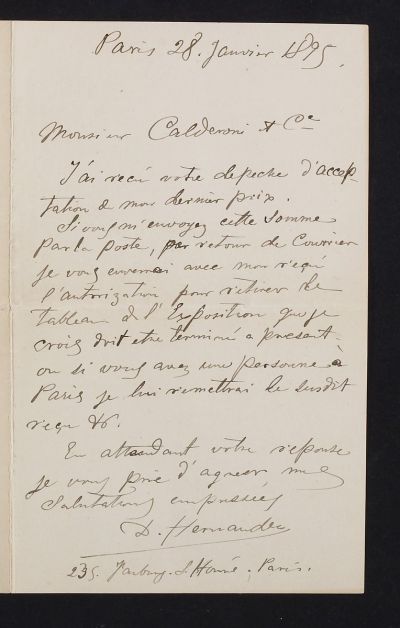 Paris 28. Janvier 1895.
Monsieur Calderoni & Cie
J'ai reçu votre depeche d'accep-
tation de mon dernier prix.
Si vous m'envoyez cette somme
Par la poste, par retour de Courrier
je vous enverrai avec mon reçu
l'autorization pour retirer le
tableau de l'Exposition que je
crois doit etre terminé a present
ou si vous avez une personne a
Paris je lui remettrai le susdit
reçu &c.
En attendant votre reponse
je vous prie d'agreer mes
Salutations empressées
D. Hernandez
235. Faubourg. S. Honoré, Paris.